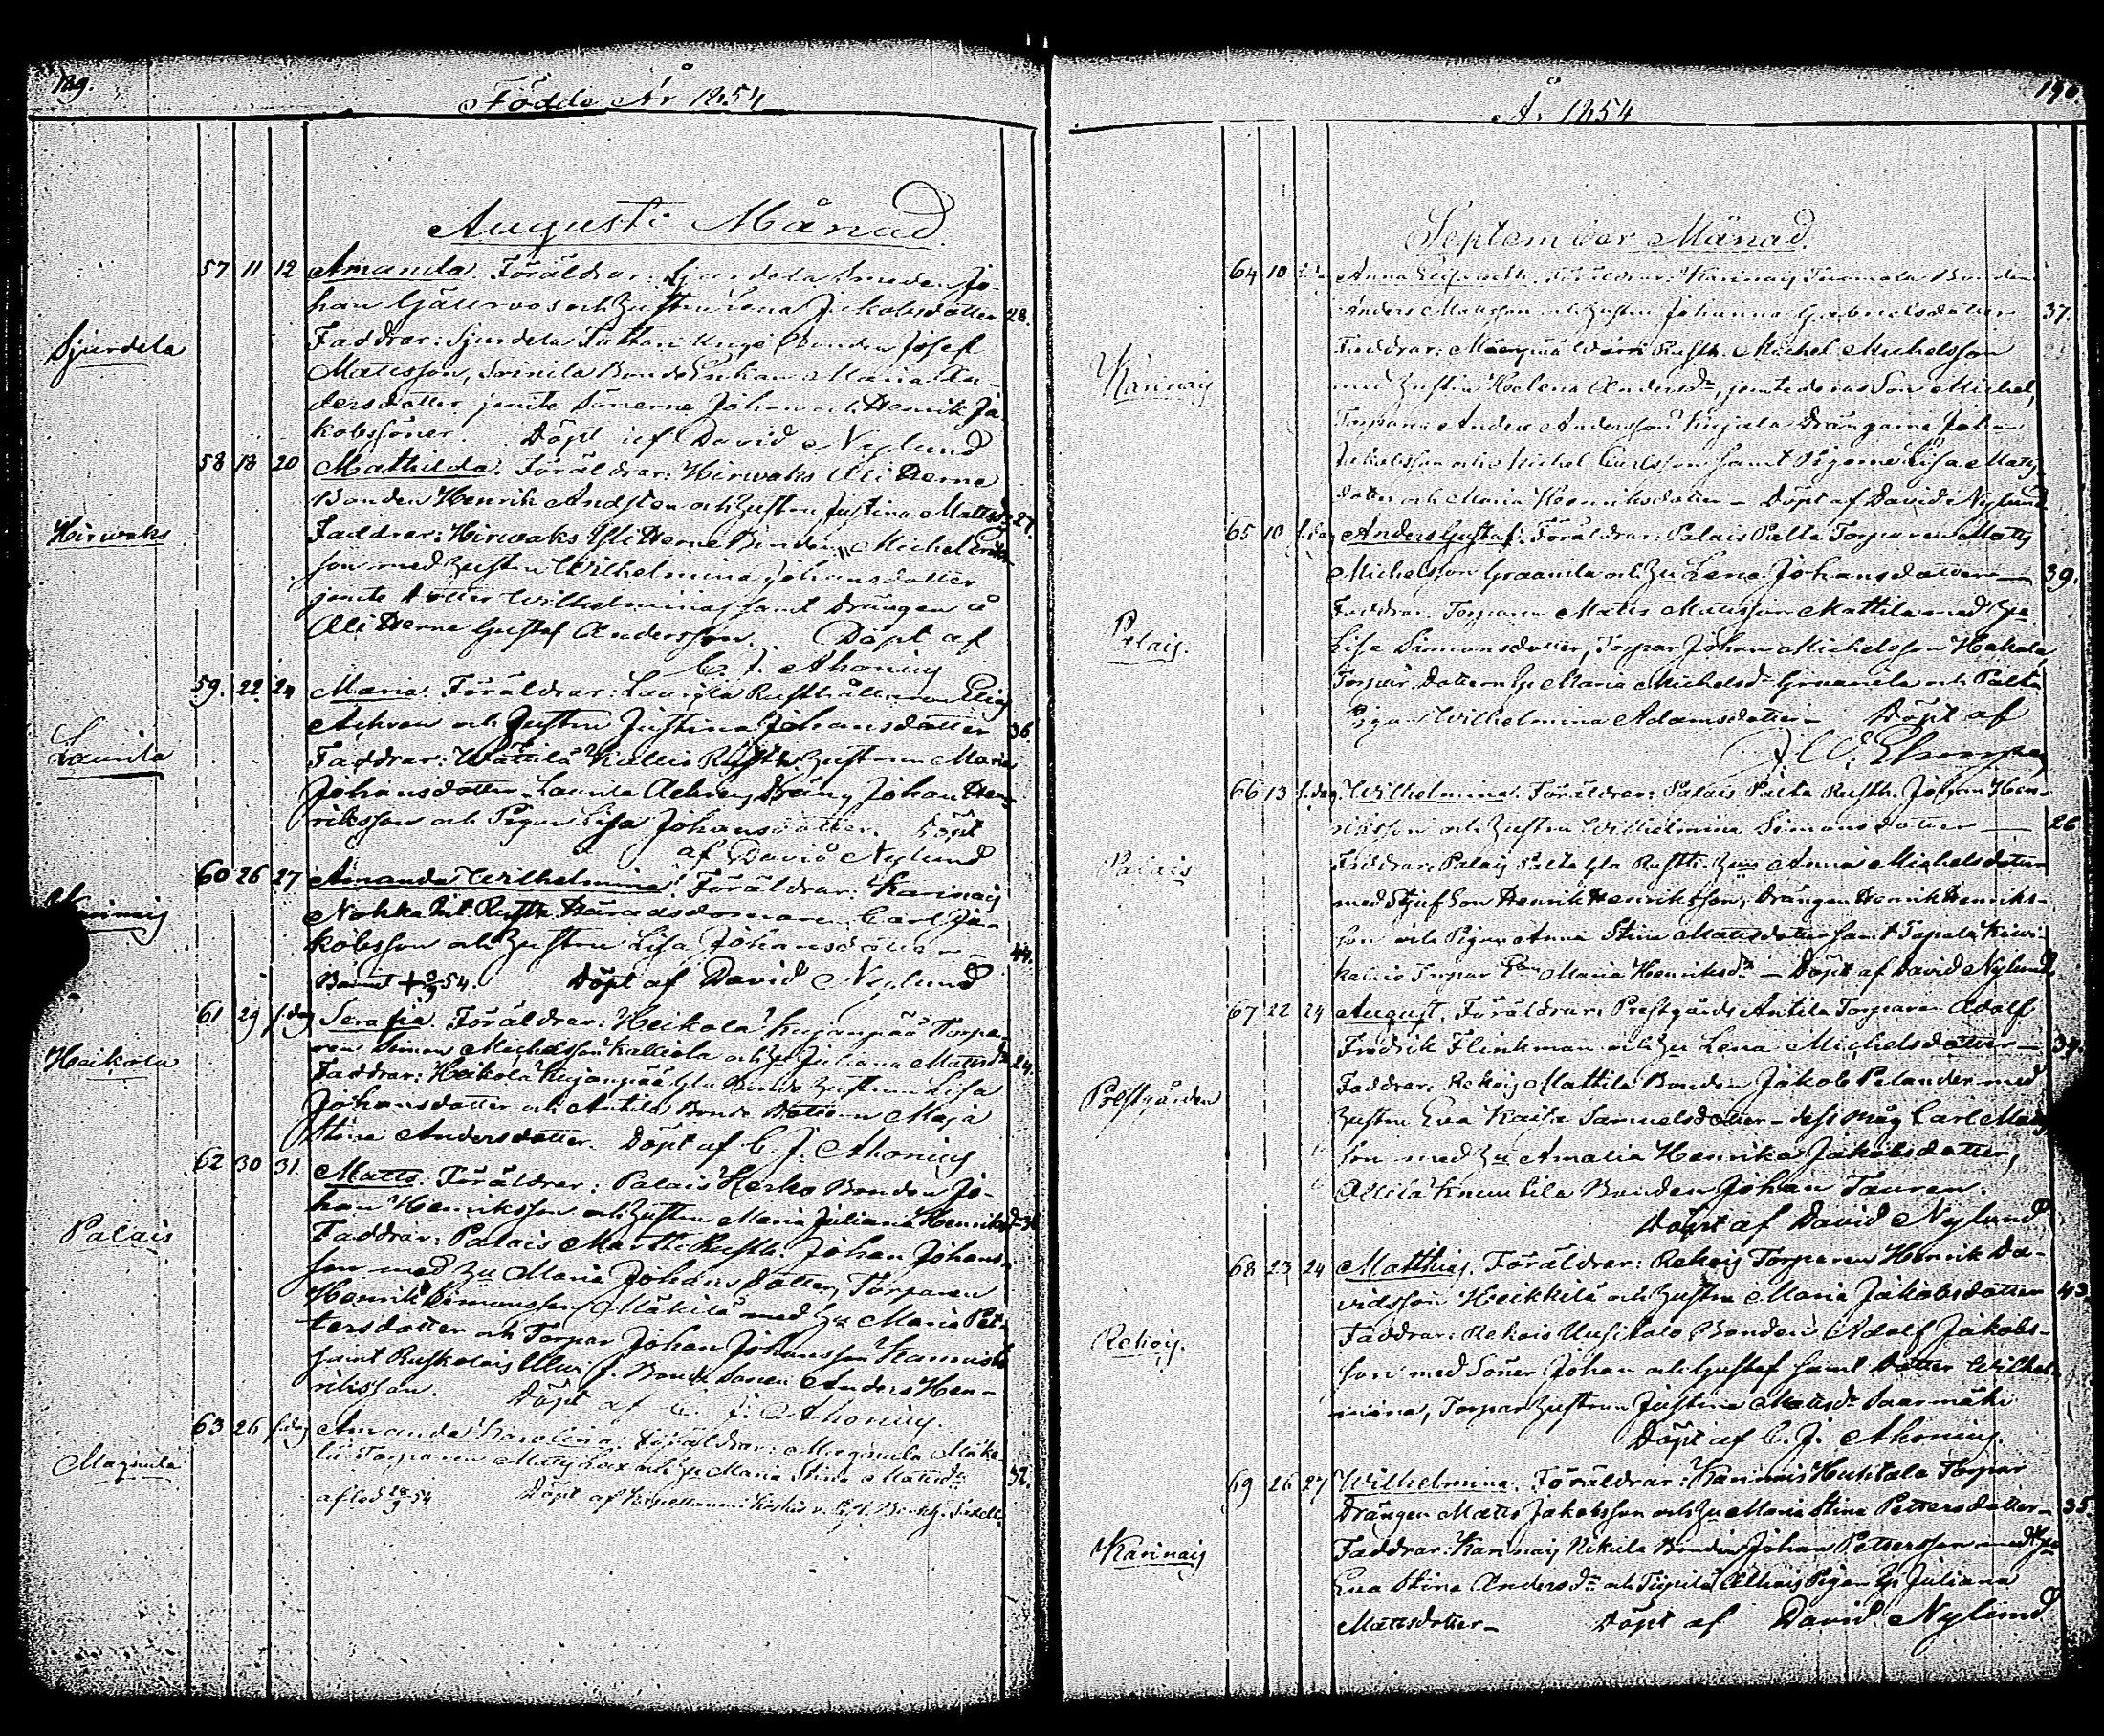 189.
Födde År 1854
Augusti Månad.
Sjurdela
57 11 12 Amanda. Föräldrar: Sjurdela Smeden Jo-
han och Hustrun Lena Jakobsdotter 28.
Faddrar: Sjurdela Unge Bonden Josef
Mattsson, Bonde Enkan Maria An-
dersdotter jemte Sönerne Johan och Henrik Ja-
kobssöner. Döpt af David Nylund
Hirwaks
58 18 20 Mathilda. Föräldrar: Hirwaks Ali Herne
Bonden Henrik Andsten och Hustrun Justina Mattsdr 27.
Faddrar: Hirwaks Yli Herne Bonden Michel
son med Hustru Wilhelmina Johansdotter
jemte dotter Wilhelmina samt Drängen å
Ali Herne Gustaf Andersson. Döpt af
C. J. Ahonius
Laurila
59. 22 24 Maria. Föräldrar: Laurila Rusthållaren Elias
Achren och Hustrun Justina Johansdotter 36.
Faddrar: Wättilä Kallis Rusth. Hustrun Maria
Johansdotter, Laurila Achren, Dräng Johan Hen-
riksson och Pigan Lisa Johansdotter. Döpt
af David Nylund
Karinais
60 26 27 Amanda Wilhelmina. Föräldrar: Karinais
Nohka Rusth. Häradsdomaren Carl Ja-
kobsson och Hustrun Lisa Johansdotter 44.
Barnet + 54. Döpt af David Nylund
Heikola
61 29 s.dag Serafia. Föräldrar: Heikola Kujanpää Torpa-
ren Simon Michelsson Kalliola och Hu Juliana Mattsdr 24.
Faddrar: Heikola Kujanpää Gla Bonde Hustrun Lisa
Johansdotter och Antila Bonde Dottern Maja
Stina Andersdotter. Döpt af C. J. Ahonius
Palais
62 30 31. Matts. Föräldrar: Palais Herko Bonden Jo-
han Henriksson och Hustrun Maria Juliana Henriksdr
Faddrar: Palais Martti Rusth. Johan Johans-
son med Hu Maria Johansdotter, Torparen
Henrik Simonsson Mäkilä med Hu Maria Pet-
tersdotter och Torpar Johan Johansson
samt Ruskolais Bonde Sonen Anders Hen-
riksson. Döpt af C. J. Ahonius.
63 26 s.dag Amanda Karolina. Föräldrar: Mäke-
lä Torparen Matts och Hu Maria Stina Mattsdr 32.
afled 54 Döpt af

190.
År 1854
September Månad.
Karinais
64 10 s.da Anna. Föräldrar: Karinais Bonden
Anders Mattsson och Hustrun Johanna Gabrielsdotter 37.
Faddrar: Rusth. Michel Michelsson
med Hustru Helena Andersdr, jemte deras Son Michel,
Torparen Anders Andersson Kujala Drängarne Johan
Jakobsson och Michel Carlsson samt Pigorne Lisa Matts-
dotter och Maria Henriksdotter - Döpt af David Nylund
Palais.
65 10 s.dag Anders Gustaf. Föräldrar: Palais Palta Torparen Matts
Michelsson Graanila och Hu Lena Johansdotter 39.
Faddrar: Torparen Matts Mattsson Mattila med Hu
Lisa Simonsdotter, Torpar Johan Michelsson Hakala,
Torpar Dottern Maria Michelsdr Graanila och Palta
Pigan Wilhelmina Adamsdotter - Döpt af
Palais
66 13 s.dag Wilhelmina. Föräldrar: Palais Palta Rusth. Johan Hen-
riksson och Hustrun Wilhelmina Simonsdotter 26
Faddrar: Palais Palta Gla Rusth. Anna Michelsdotter
med Stjufson Henrik Henriksson, Drängen Henrik Henriks-
son och Pigan Anna Stina Mattsdotter samt Tapala
Torpar Maria Henriksdr - Döpt af David Nylund.
Prestgården
67 22 24 August. Föräldrar: Prestgårds Antila Torparen Adolf
Fredrik Flinkman och Hu Lena Michelsdotter 34.
Faddrar: Rekois Mattila Bonden Jakob Pelander med
Hustru Eva Kaisa Samuelsdotter - dess måg Carl Matts
son med Hu Amalia Henrika Jakobsdotter,
Allila Knuutila Bonden Johan Tauren.
Döpt af David Nylund
Rekois.
68 23 24 Matthias. Föräldrar: Rekois Torparen Henrik Da-
vidsson Heikkilä och Hustrun Maria Jakobsdotter 43.
Faddrar: Rekois Uusitalo Bonden Adolf Jakobs-
son med Söner Johan och Gustaf samt Dotter Wilhel-
mina, Torpar Hustrun Justina Mattsdr Saarmäki
Döpt af C. J. Ahonius.
Karinais
69 26 27 Wilhelmina. Föräldrar: Karinais Huhtala Torpar
Drängen Matts Jakobsson och Hu Maria Stina Pettersdotter 35.
Faddrar: Karinais Nikula Bonden Johan Pettersson med Hu
Eva Stina Andersdr och Pigan Juliana
Mattsdotter - Döpt af David Nylund